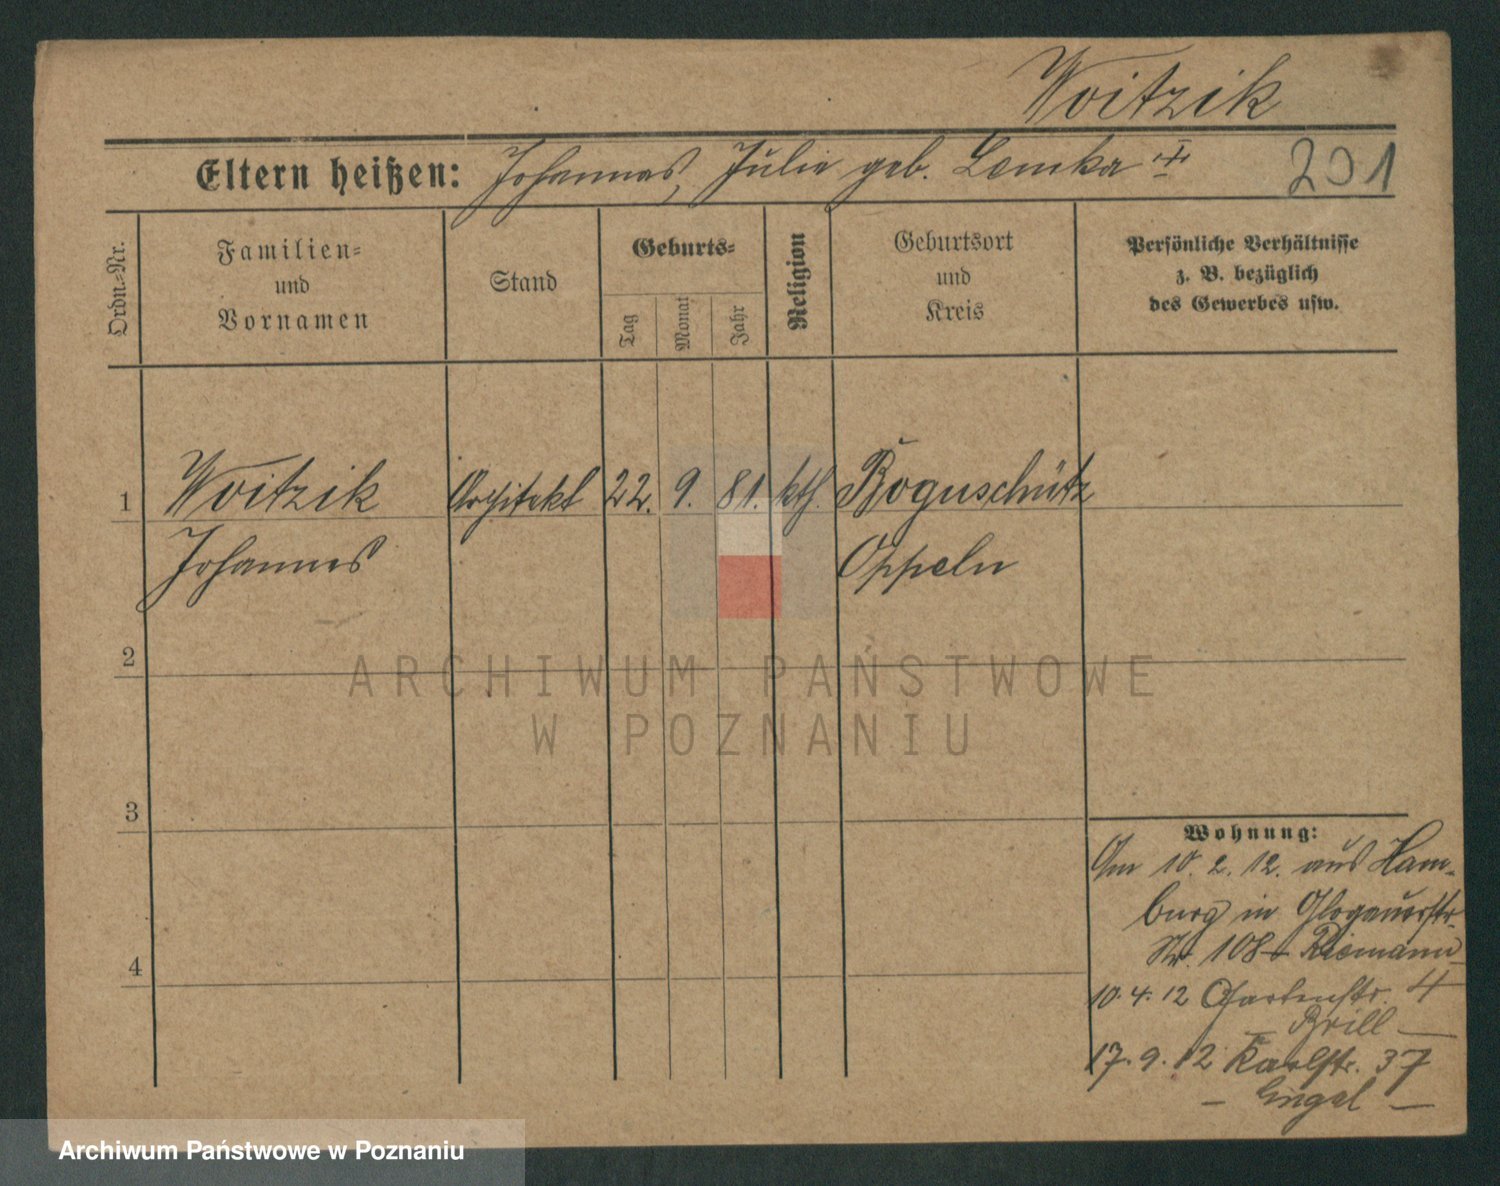 Woitzik
Eltern heißen: Johannes, Julie geb. Lemka
201
Ordn.-Nr.
Familien-
und
Vornamen
Stand
Geburts-
Tag
Monat
Jahr
Religion
Geburtsort
und
Kreis
Persönliche Verhältnisse
z. B. bezüglich
des Gewerbes usw.
1 Woitzik Architekt 22. 9. 81. kth. Boguschütz
Johannes Oppeln
2
ARCHIWUM PAŃSTWOWE
W POZNANIU
3
Wohnung:
Am 10. 2. 12. aus Ham-
burg in Glogauerstr.
Nr. 108 Riemann
4
10. 4. 12 Gartenstr. 4
– Brill –
17. 9. 12 Karlstr. 37
– Engel –
Archiwum Państwowe w Poznaniu